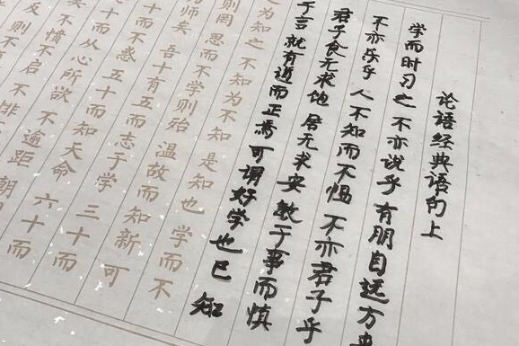 论语经典语句上
学而时习之 不亦说乎 有朋自远方来
不亦乐乎 人不知而不愠 不亦君子乎
君子食无求饱 居无求安 敏于事而慎
于言 就有道而正焉 可谓好学也已 知
之为知之 不知为不知 是知也 学而不
则罔 思而不学则殆 温故而知新 可
师矣 吾十有五而志于学 三十而
十而不惑 五十而知天命 六十而
十而从心所欲 不逾距 朝
不愤不启 不悱
反 则不